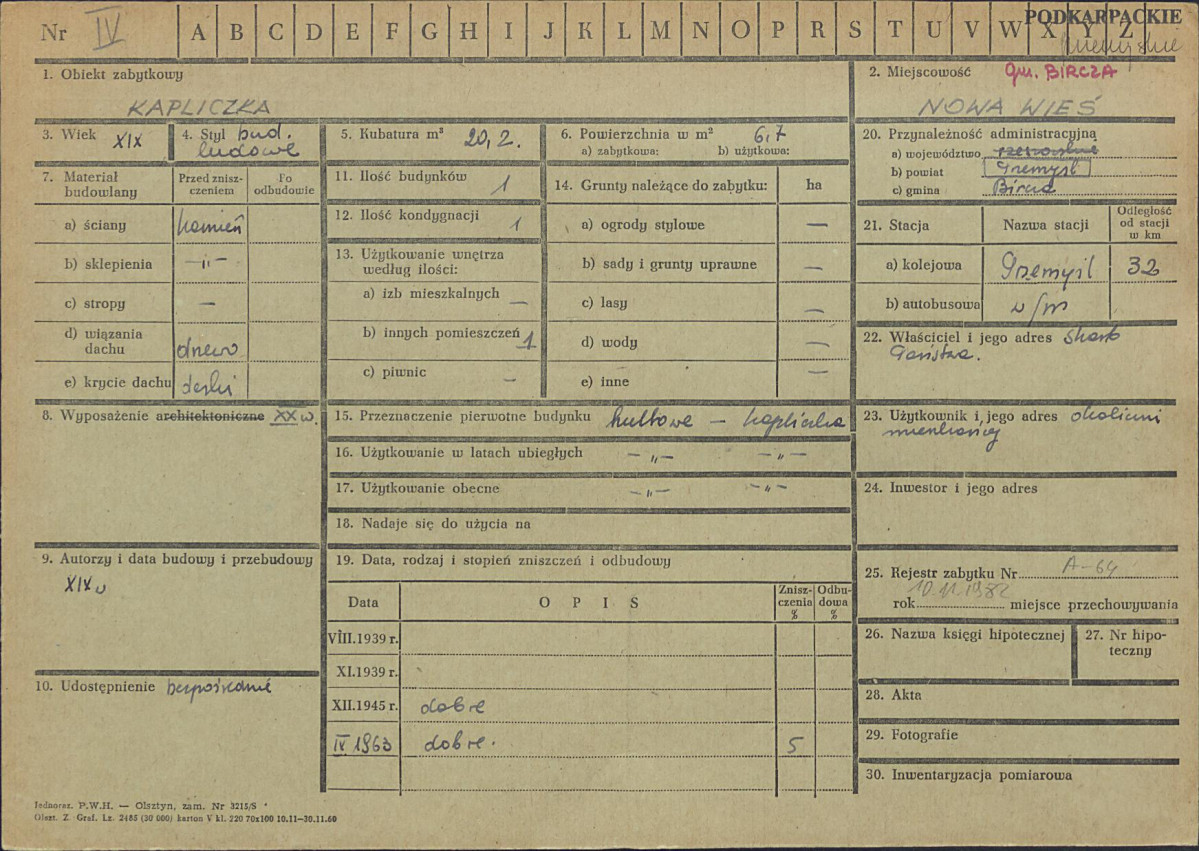 Nr IV A B C D E F G H I J K L M N O P R S T U V W X Y Z
PODKARPACKIE
1. Obiekt zabytkowy
KAPLICZKA
2. Miejscowość gm. BIRCZA
NOWA WIEŚ
3. Wiek XIX
4. Styl bud.
ludowe
5. Kubatura m³ 20,2.
6. Powierzchnia w m² 6,7
a) zabytkowa: b) użytkowa:
7. Materiał
budowlany
Przed znisz-
czeniem
Po
odbudowie
a) ściany kamień
b) sklepienia —„—
c) stropy —
d) wiązania
dachu drewo
e) krycie dachu deski
8. Wyposażenie architektoniczne XX w.
9. Autorzy i data budowy i przebudowy
XIX w
10. Udostępnienie bezpośrednie
11. Ilość budynków 1
12. Ilość kondygnacji 1
13. Użytkowanie wnętrza
według ilości:
a) izb mieszkalnych —
b) innych pomieszczeń 1
c) piwnic —
14. Grunty należące do zabytku: ha
a) ogrody stylowe —
b) sady i grunty uprawne —
c) lasy —
d) wody —
e) inne —
15. Przeznaczenie pierwotne budynku kultowe — kapliczka
16. Użytkowanie w latach ubiegłych —„— —„—
17. Użytkowanie obecne —„— —„—
18. Nadaje się do użycia na
19. Data, rodzaj i stopień zniszczeń i odbudowy
Data OPIS Znisz-
czenia
% Odbu-
dowa
%
VIII.1939 r.
XI.1939 r.
XII.1945 r. dobre
IV 1963 dobre. 5
20. Przynależność administracyjna
a) województwo rzeszowskie
b) powiat Przemyśl
c) gmina Bircza
21. Stacja Nazwa stacji Odległość
od stacji
w km
a) kolejowa Przemyśl 32
b) autobusowa w/m
22. Właściciel i jego adres Skarb
Państwa.
23. Użytkownik i jego adres okoliczni
mieszkańcy
24. Inwestor i jego adres
25. Rejestr zabytku Nr A-64
10.11.1982
rok miejsce przechowywania
26. Nazwa księgi hipotecznej
27. Nr hipo-
teczny
28. Akta
29. Fotografie
30. Inwentaryzacja pomiarowa
Jednoraz. P.W.H. — Olsztyn, zam. Nr 3215/S
Olszt. Z. Graf. Lz. 2485 (30 000) karton V kl. 220 70x100 10.11—30.11.60